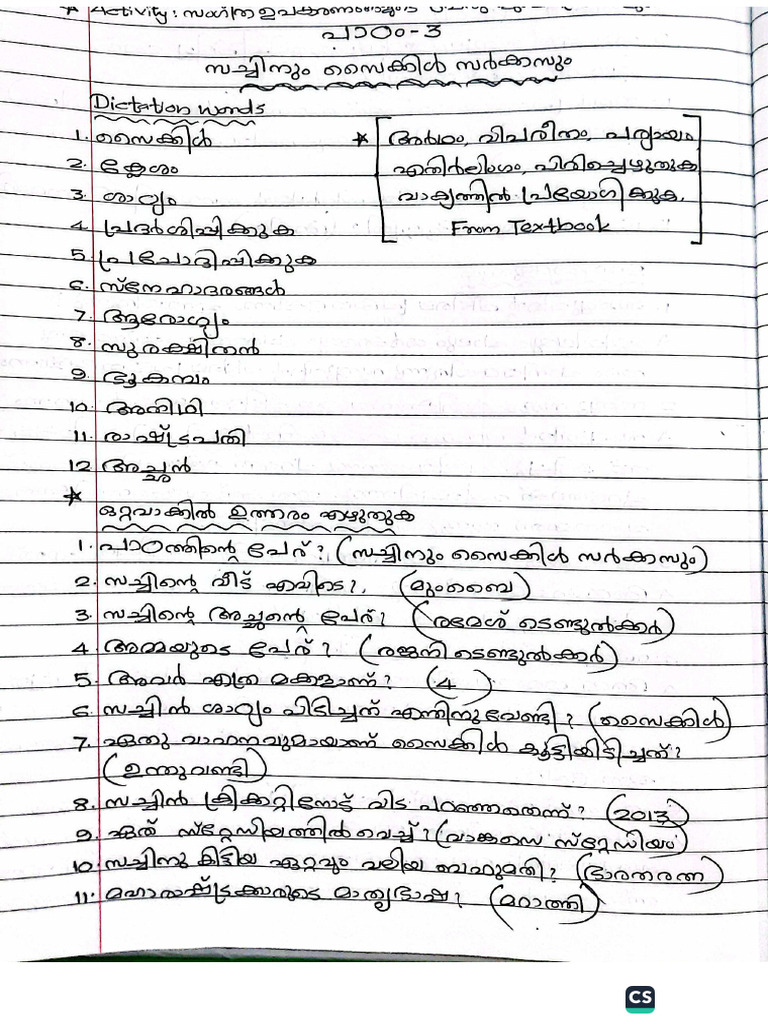 * Activity: സംഗീത ഉപകരണങ്ങളുടെ
പാഠം-3
സച്ചിനും സൈക്കിൾ സർക്കസും
Dictation words
1. സൈക്കിൾ
* [അർത്ഥം, വിപരീതം, പര്യായം
2. ക്ലേശം
എതിർലിംഗം, പിരിച്ചെഴുതുക
3. ശാഠ്യം
വാക്യത്തിൽ പ്രയോഗിക്കുക.
4. പ്രദർശിപ്പിക്കുക
From Textbook]
5. പ്രചോദിപ്പിക്കുക
6. സ്നേഹാദരങ്ങൾ
7. ആരോഗ്യം
8. സുരക്ഷിതൻ
9. ഭൂകമ്പം
10. അതിഥി
11. രാഷ്ട്രപതി
12. അച്ഛൻ
* ഒറ്റവാക്കിൽ ഉത്തരം എഴുതുക
1. പാഠത്തിന്റെ പേര്? (സച്ചിനും സൈക്കിൾ സർക്കസും)
2. സച്ചിന്റെ വീട് എവിടെ?, (മുംബൈ)
3. സച്ചിന്റെ അച്ഛന്റെ പേര്? (രമേശ് ടെണ്ടുൽക്കർ)
4. അമ്മയുടെ പേര്? (രജനി ടെണ്ടുൽക്കർ)
5. അവർ എത്ര മക്കളാണ്? (4)
6. സച്ചിൻ ശാഠ്യം പിടിച്ചത് എന്തിനുവേണ്ടി? (സൈക്കിൾ)
7. ഏതു വാഹനവുമായാണ് സൈക്കിൾ കൂട്ടിയിടിച്ചത്?
(ഉന്തുവണ്ടി)
8. സച്ചിൻ ക്രിക്കറ്റിനോട് വിട പറഞ്ഞതെന്ന്? (2013)
9. ഏത് സ്റ്റേഡിയത്തിൽ വെച്ച്? (വാങ്കഡെ സ്റ്റേഡിയം)
10. സച്ചിനു കിട്ടിയ ഏറ്റവും വലിയ ബഹുമതി? (ഭാരതരത്ന)
11. മഹാരാഷ്ട്രക്കാരുടെ മാതൃഭാഷ? (മറാത്തി)
CS